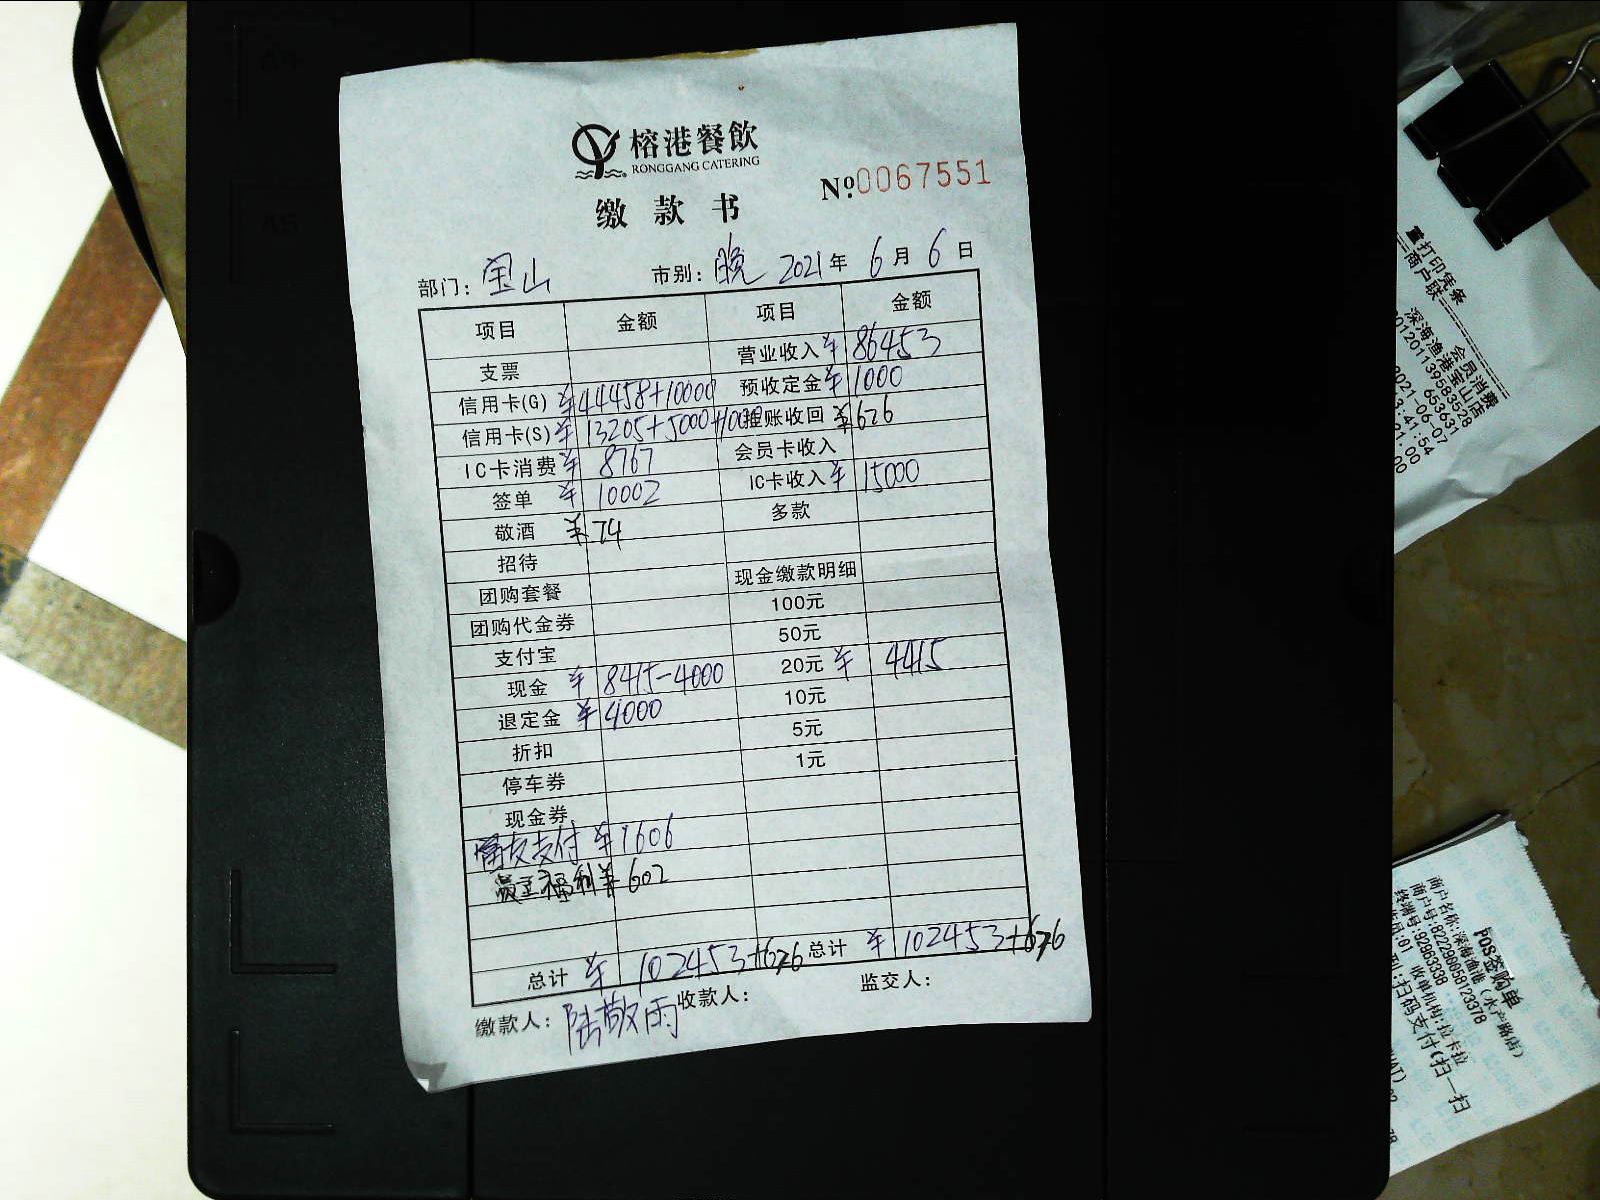 榕港餐飲
RONGGANG CATERING
缴款书
№0067551
部门：宝山 市别：晚 2021年6月6日
项目 金额 项目 金额
支票 营业收入 ¥86453
信用卡(G) ¥44458+10000 预收定金 ¥1000
信用卡(S) ¥13205+5000+ 挂账收回 ¥626
IC卡消费 ¥8767 会员卡收入
签单 ¥10002 IC卡收入 ¥15000
敬酒 ¥74 多款
招待
团购套餐 现金缴款明细
团购代金券 100元
支付宝 50元
现金 ¥8415-4000 20元 ¥4415
退定金 ¥4000 10元
折扣 5元
停车券 1元
现金券
支付 ¥1606
员工福利 ¥602
总计 ¥102453+676 总计 ¥102453+676
缴款人：陆敬雨 收款人： 监交人：
重打印凭条
商户联
会员消费
深海渔港宝山店
201201139583528
653631
2021-06-07
POS签购单
商户名称:深海渔港(水产路店)
商户号:822290058123378
终端号:92963398
收单机构:拉卡拉
扫码支付(扫一扫